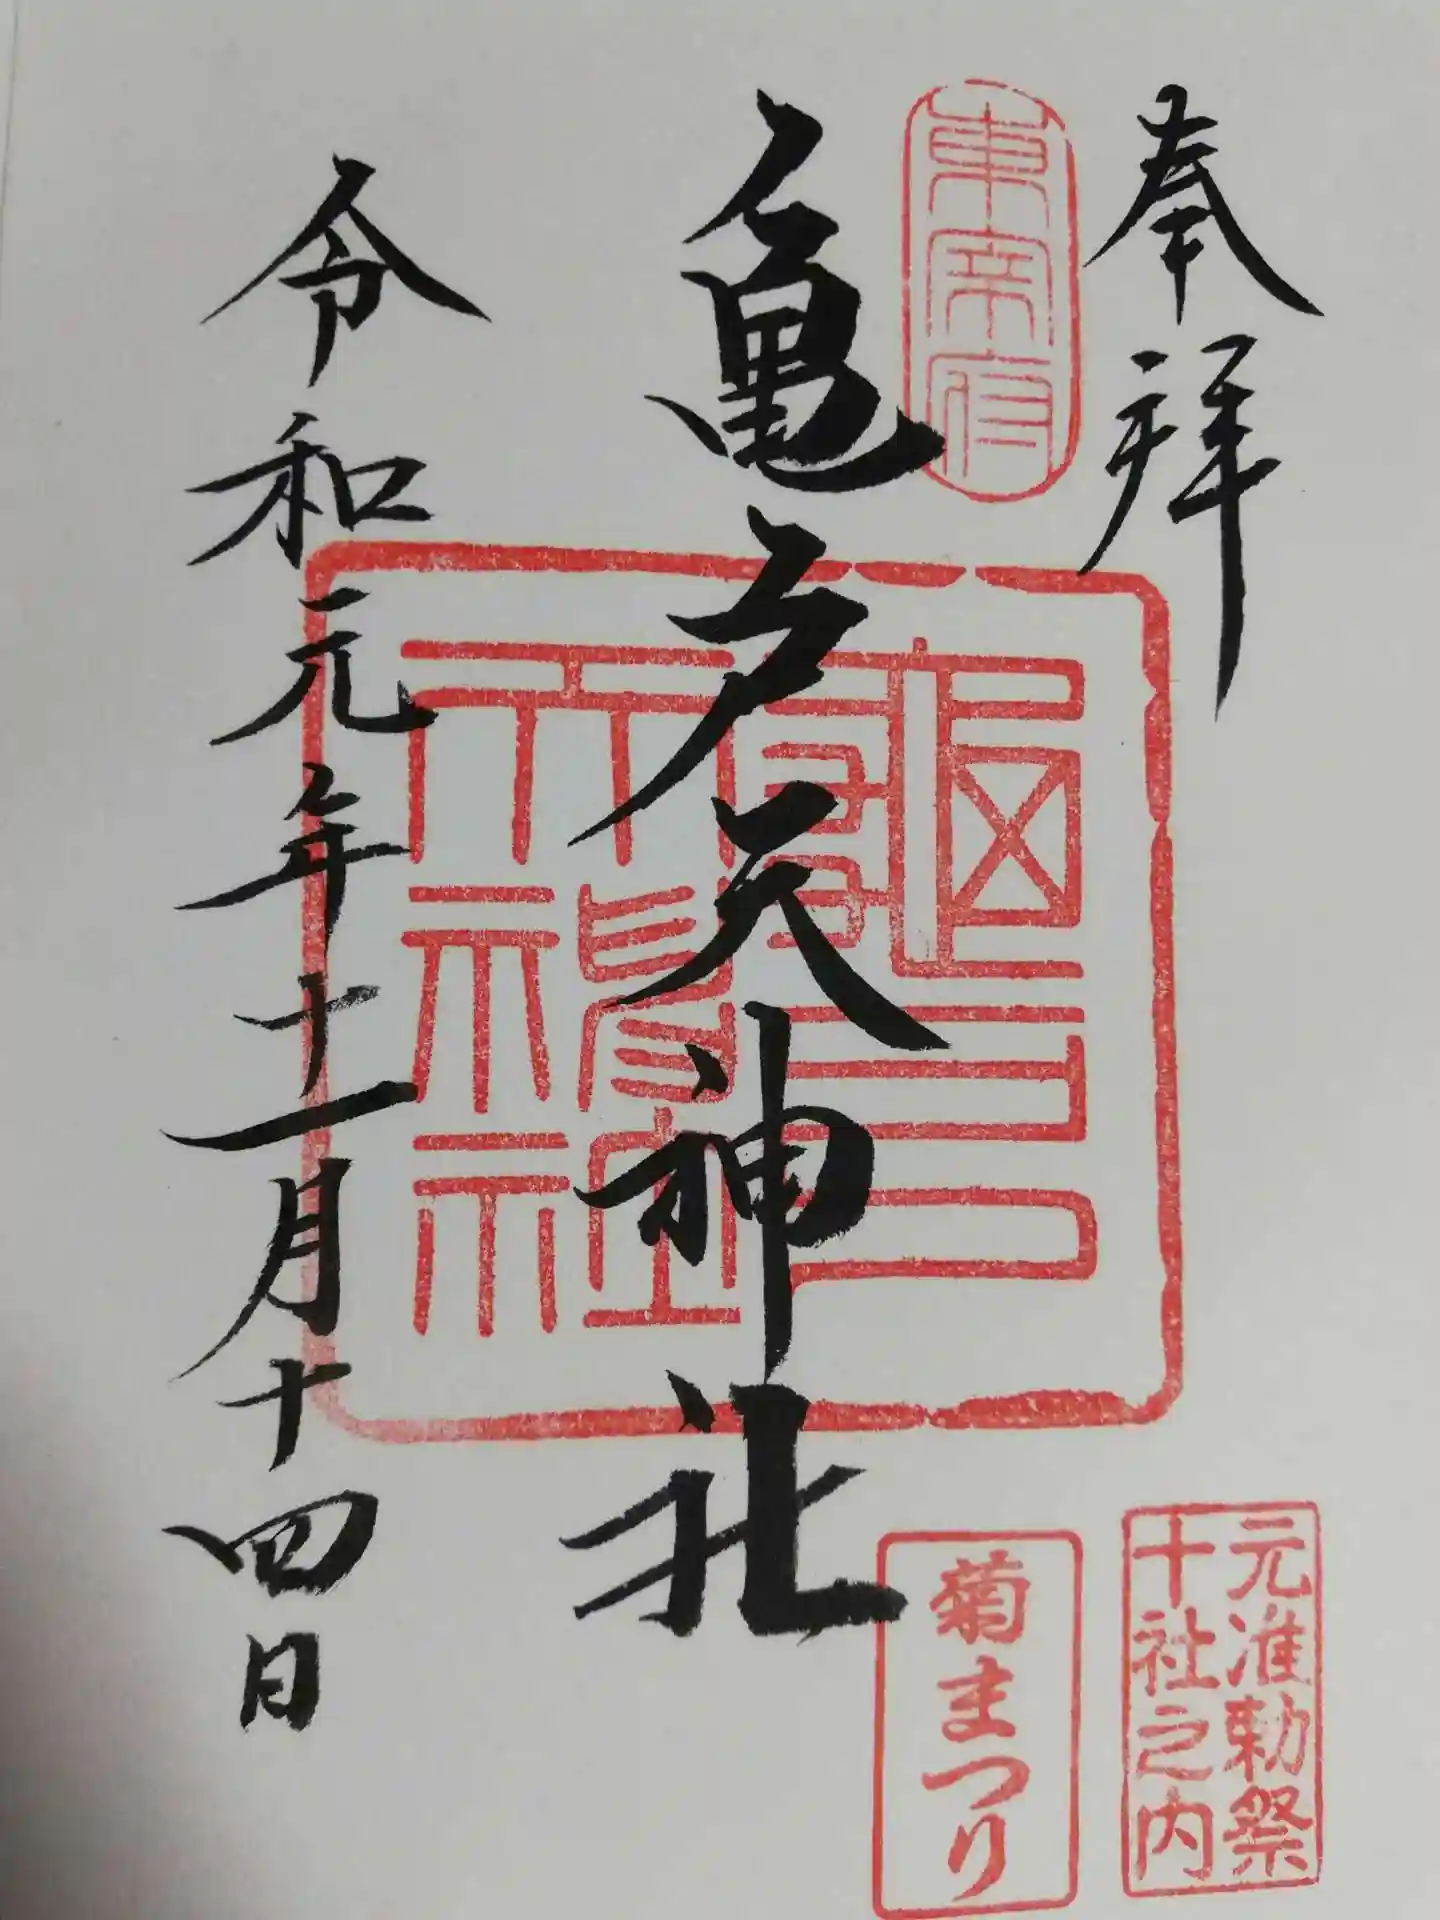 奉拝
東宰府
亀戸天神社
龜戸天神社
令和元年十一月十四日
元准勅祭
十社之内
菊まつり